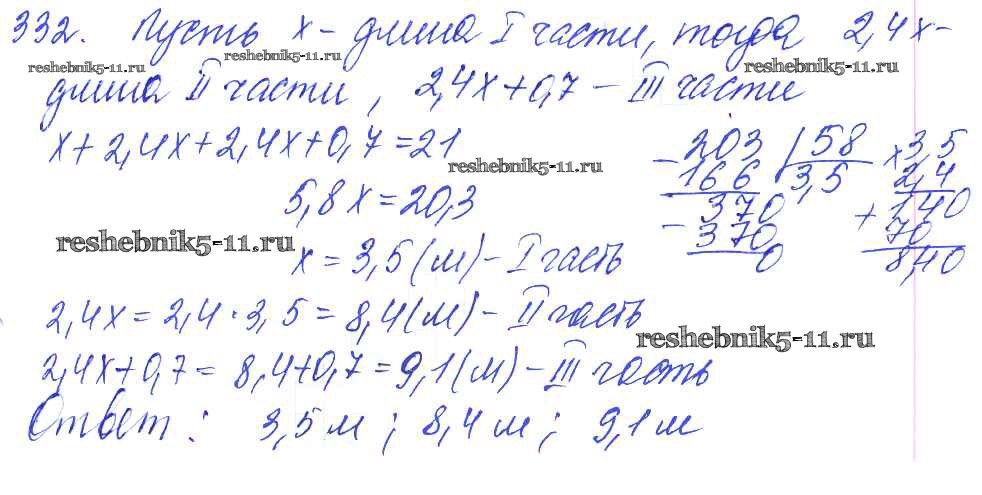 332. Пусть x - длина I части, тогда 2,4x -
reshebnik5-11.ru reshebnik5-11.ru reshebnik5-11.ru
длина II части, 2,4x+0,7 - III части
x+2,4x+2,4x+0,7=21
reshebnik5-11.ru
5,8x=20,3
reshebnik5-11.ru
x = 3,5 (м) - I часть
2,4x = 2,4 · 3,5 = 8,4 (м) - II часть
reshebnik5-11.ru
2,4x+0,7 = 8,4+0,7 = 9,1 (м) - III часть
Ответ: 3,5 м; 8,4 м; 9,1 м
- 203 | 58
166 3,5
- 370
370
0
x 3,5
2,4
+ 140
70
8,40